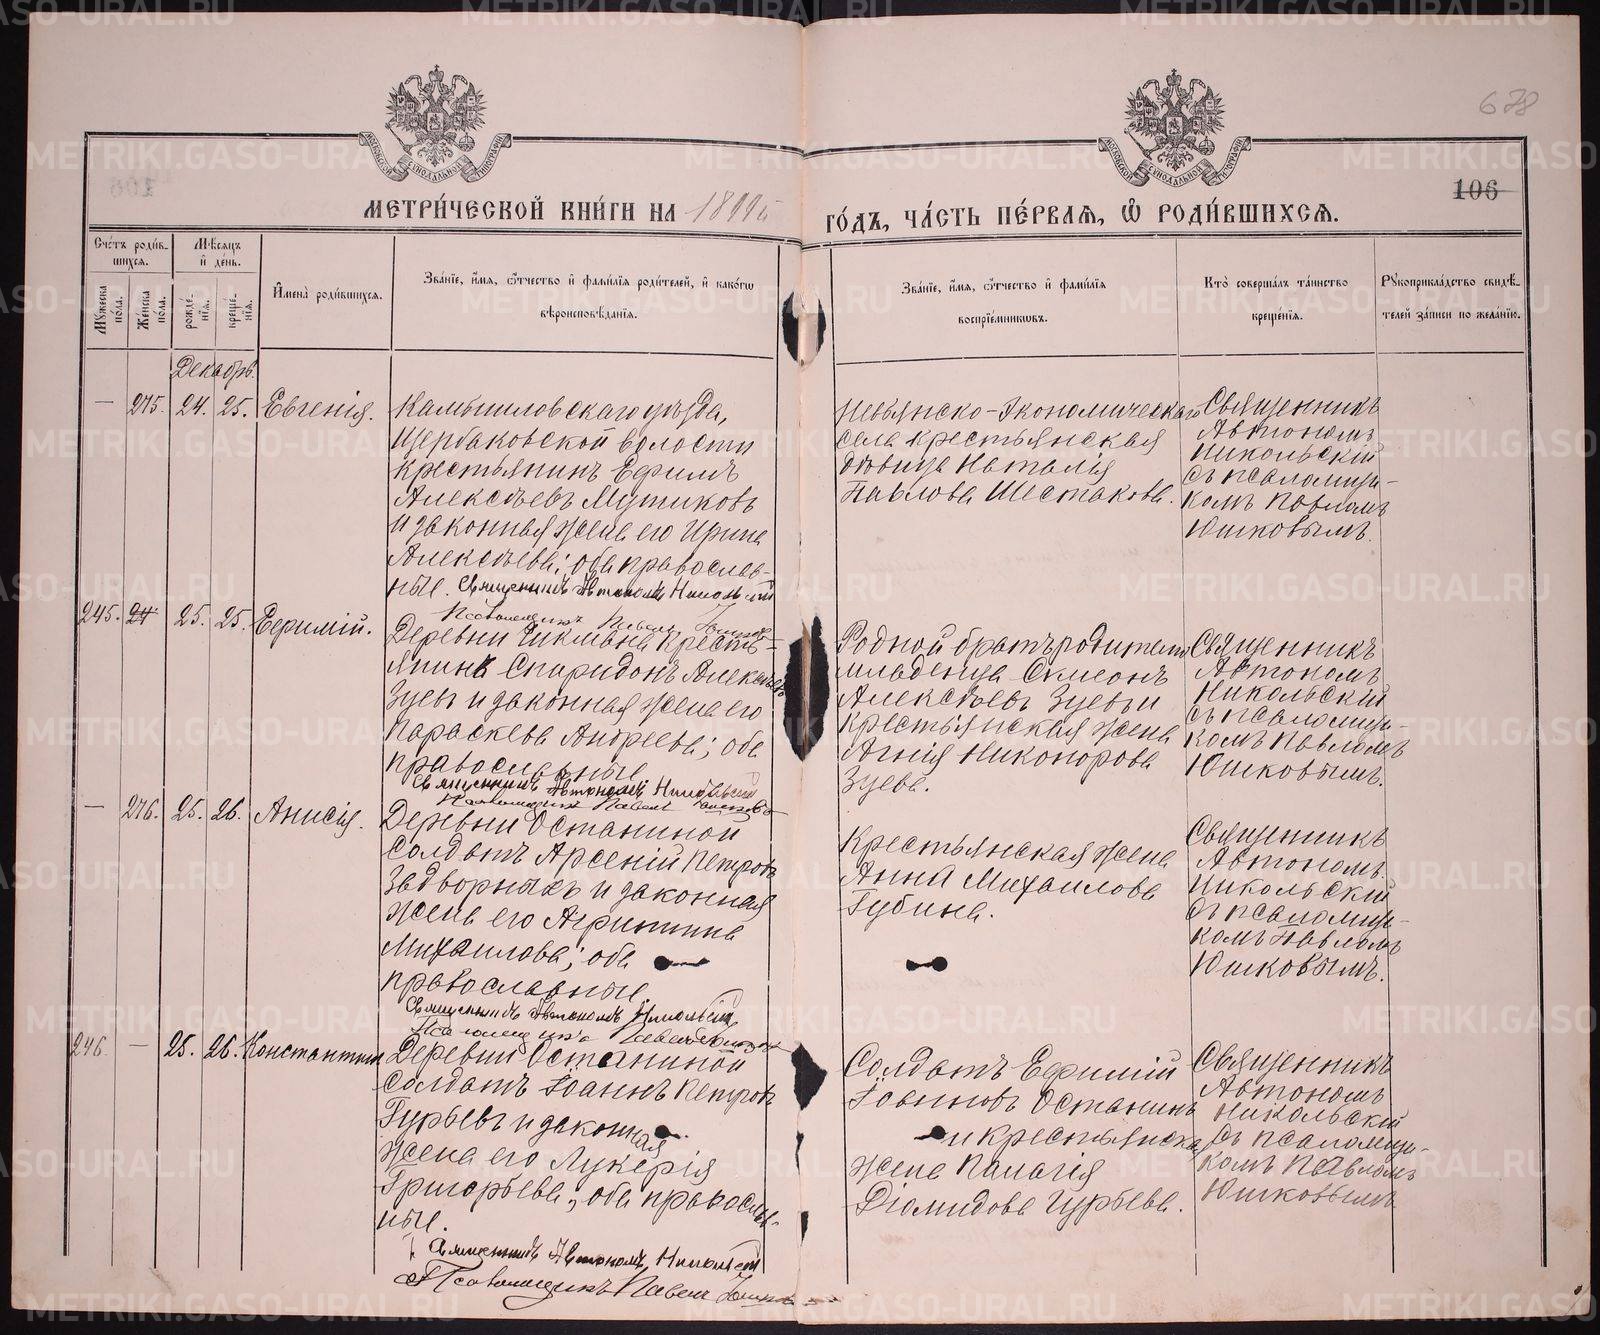 678
106
МЕТРИ́ЧЕСКОЙ КНИ́ГИ НА 1899й
ГО́ДЪ, ЧА́СТЬ ПЕ́РВАЯ, Ѡ҆ РОДИ́ВШИХСЯ.
Сче́тъ роди́в-
шихся.
Му́жеска по́ла.
Же́нска по́ла.
Мѣ́сяцъ
и҆ де́нь.
рожде́-
нїя.
креще́-
нїя.
И҆мена̀ роди́вшихся.
Зва́нїе, и҆́мя, ѻ҆́тчество и҆ фами́лїя роди́телей, и҆ како́гѡ
вѣроисповѣ́данїя.
Зва́нїе, и҆́мя, ѻ҆́тчество и҆ фами́лїя
воспрїе́мниковъ.
Кто̀ соверша́лъ та́инство
креще́нїя.
Рꙋкоприкла́дство свидѣ́-
телей за́писи по жела́нїю.
Декабрь.
— 275. 24. 25. Евгенія.
Камышловскаго уѣзда,
Щербаковской волости
крестьянинъ Ефимъ
Алексѣевъ Мутиковъ
и законная жена его Ирина
Алексѣева; оба православ-
ные. Священникъ Автономъ Никольскій
Псаломщикъ Павелъ Юшковъ
Невьянско-Экономическаго
села крестьянская
дѣвица Наталія
Павлова Шестакова.
Священникъ
Автономъ
Никольскій
съ псаломщи-
комъ Павломъ
Юшковымъ.
245. 24 25. 25. Ефимій.
Деревни крестья-
янинъ Спиридонъ Алексѣевъ
Зуевъ и законная жена его
Параскева Андреева; оба
православные.
Священникъ Автономъ Никольскій
Псаломщикъ Павелъ Юшковъ
Родной братъ родителя
младенца Симеонъ
Алексѣевъ Зуевъ и
крестьянская жена
Агнія Никонорова
Зуева.
Священникъ
Автономъ
Никольскій
съ псаломщи-
комъ Павломъ
Юшковымъ.
— 276. 25. 26. Анисія.
Деревни Останиной
солдатъ Арсеній Петровъ
Задворныхъ и законная
жена его Агриппина
Михаилова; оба
православные
Священникъ Автономъ Никольскій
Псаломщикъ Павелъ Юшковъ
Крестьянская жена
Анна Михаилова
Губина.
Священникъ
Автономъ
Никольскій
съ псаломщи-
комъ Павломъ
Юшковымъ.
246. — 25. 26. Константинъ
Деревни Останиной
солдатъ Іоаннъ Петровъ
Гурьевъ и законная
жена его Лукерія
Григорьева; оба православ-
ные.
Священникъ Автономъ Никольскій
Псаломщикъ Павелъ Юшковъ
Солдатъ Ефимій
Іоанновъ Останинъ
и крестьянская
жена Палагія
Діомидова Гурьева.
Священникъ
Автономъ
Никольскій
съ псаломщи-
комъ Павломъ
Юшковымъ
METRIKI.GASO-URAL.RU